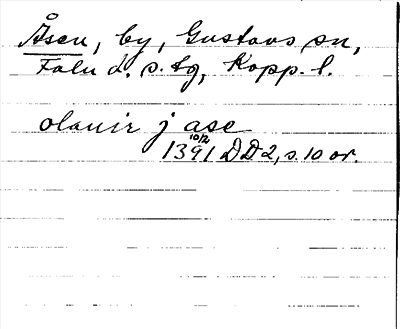 Åsen, by, Gustavs sn,
Falu d. s. tg, Kopp. l.
olauir j ase
10/2
1391 DD2, s. 10 or.